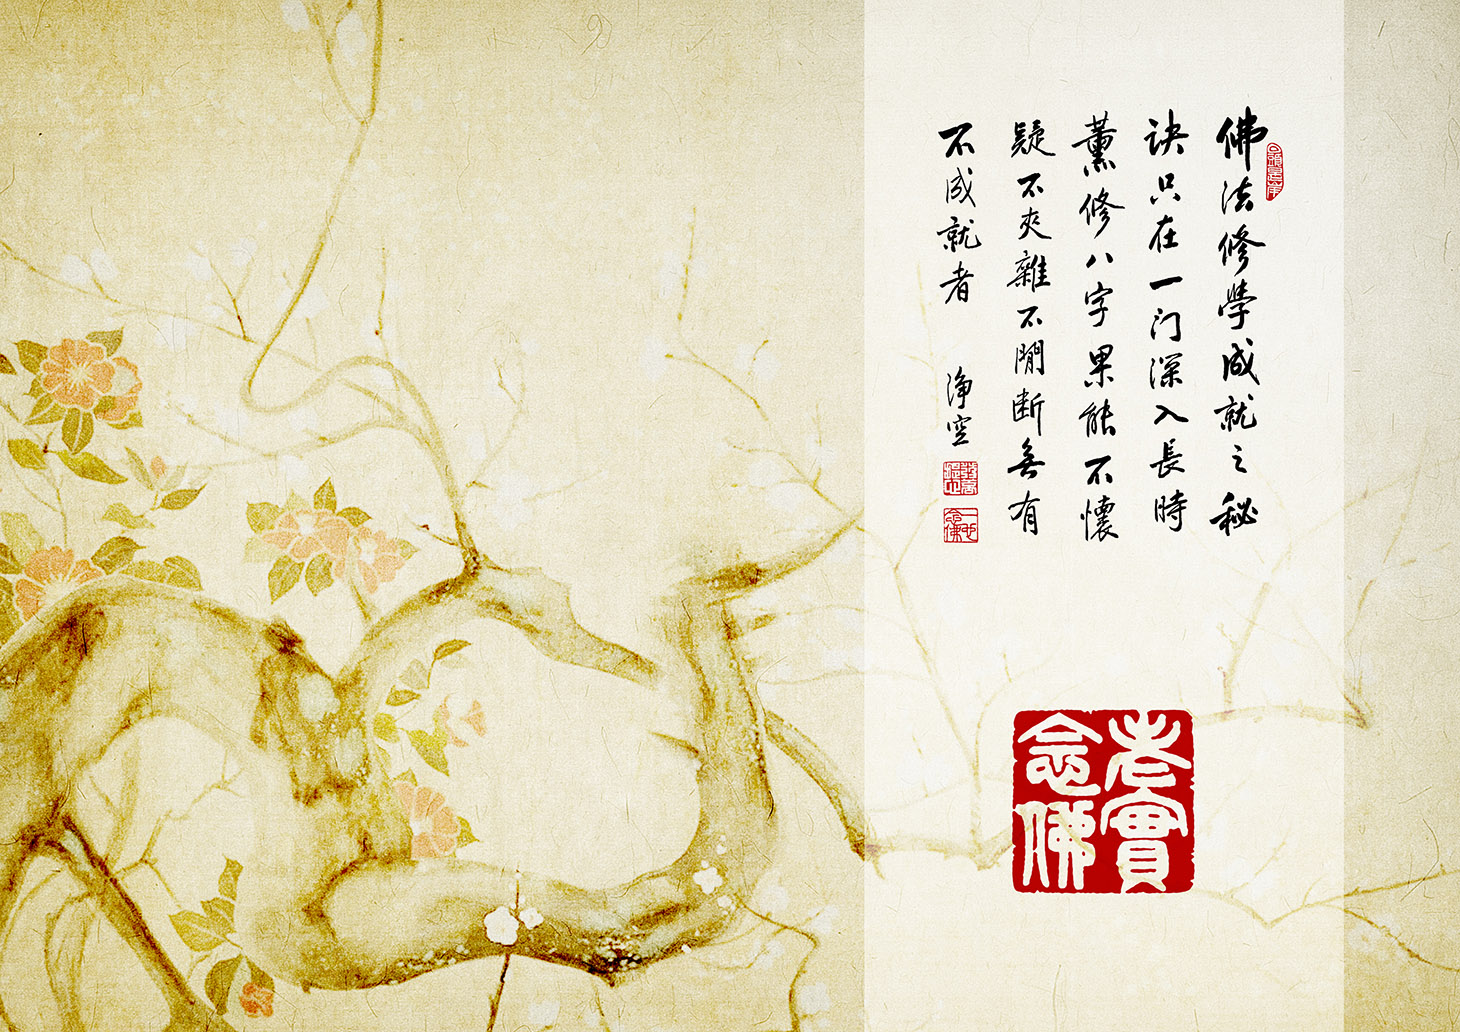 佛法修學成就之秘
诀只在一门深入長時
薰修八字果能不懷
疑不夾雜不間断無有
不成就者
淨空
一心念佛
老實念佛